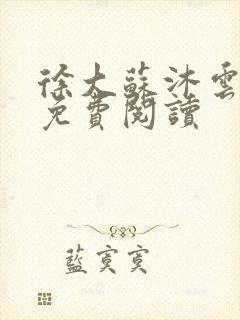 徐大蘇沐雲
免費閱讀
藍寞寞